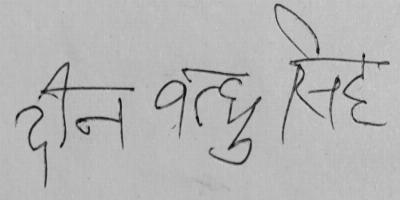 दीन वन्धु सिंह